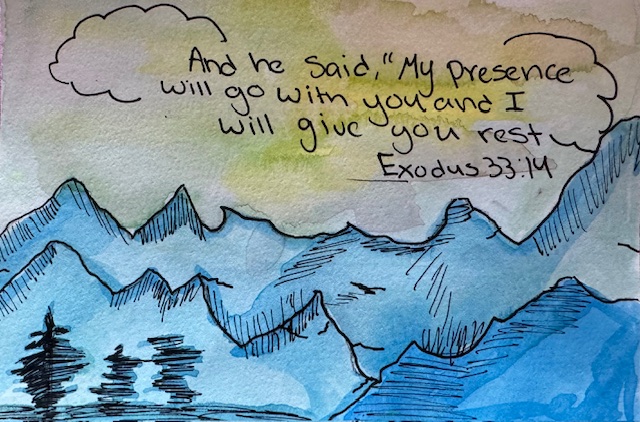 And he said, "My presence
will go with you and I
will give you rest
Exodus 33:14